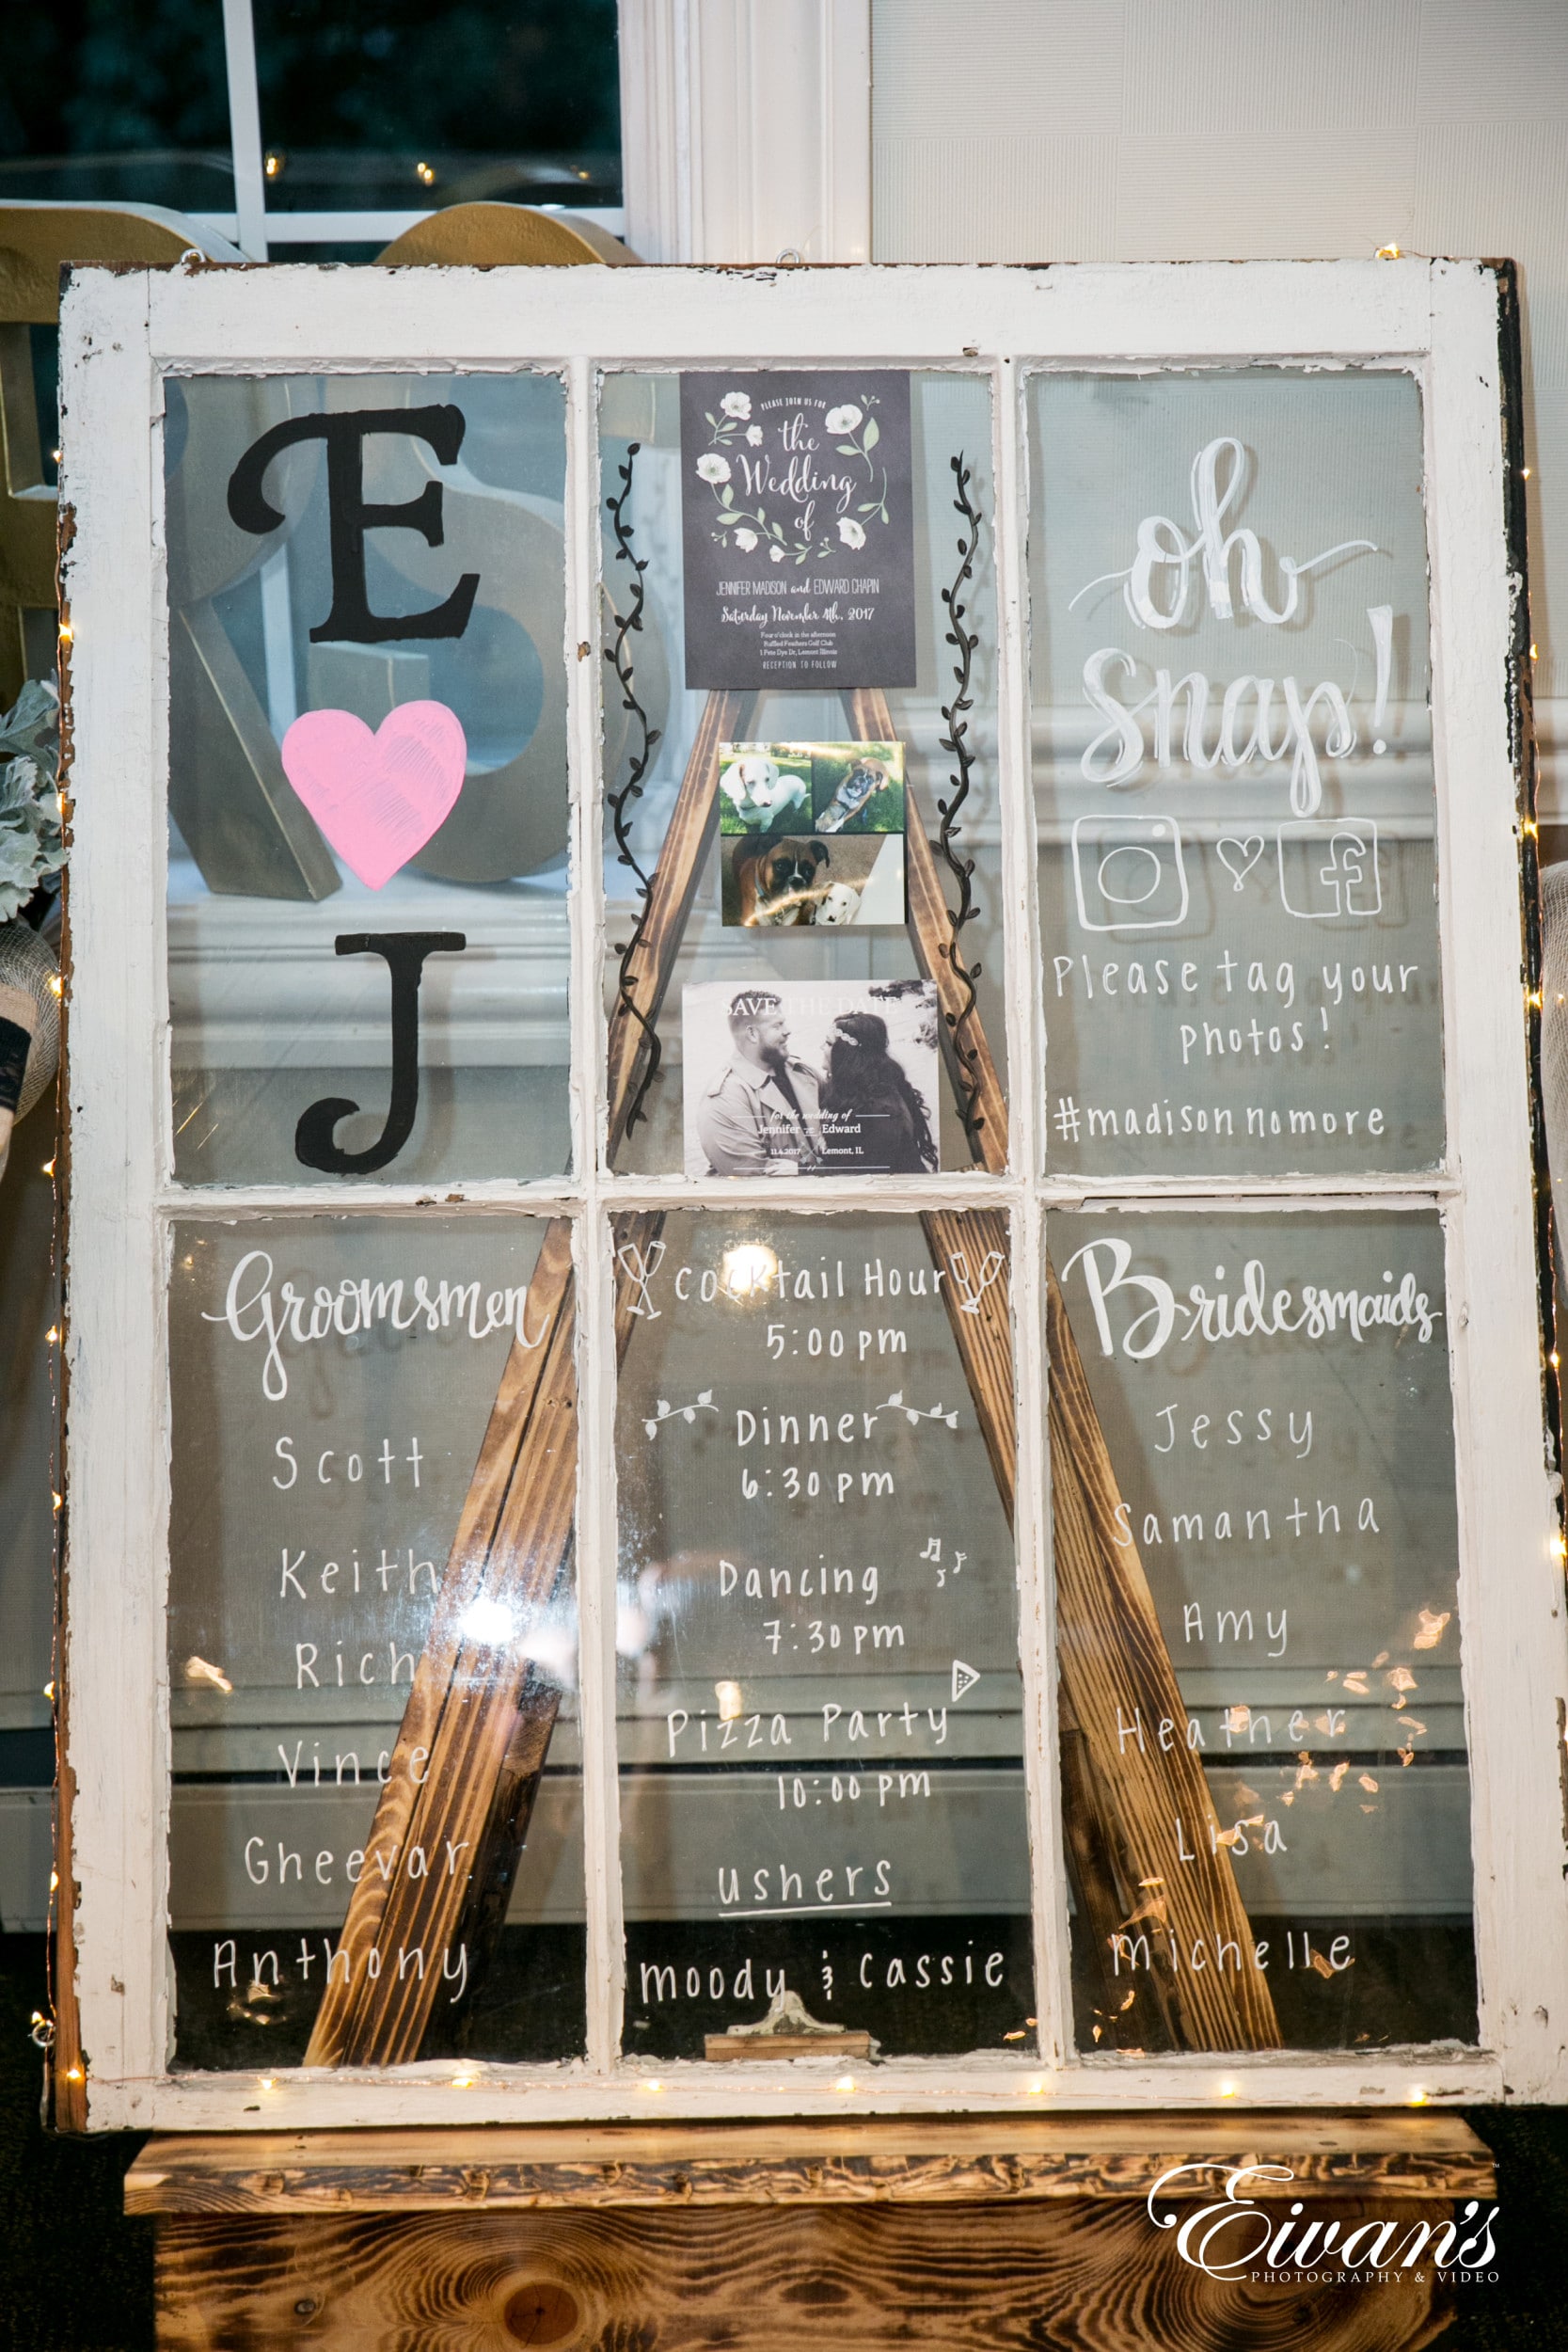 E
J
PLEASE JOIN US FOR
the
Wedding
of
JENNIFER MADISON and EDWARD CHAPIN
Saturday November 4th, 2017
Four o'clock in the afternoon
Ruffled Feathers Golf Club
1 Pete Dye Dr, Lemont Illinois
RECEPTION TO FOLLOW
SAVE THE DATE
for the wedding of
Jennifer & Edward
11.4.2017 Lemont, IL
oh
snap!
f
Please tag your
photos!
#madisonnomore
Groomsmen
Scott
Keith
Rich
Vince
Gheevar
Anthony
Cocktail Hour
5:00 pm
Dinner
6:30 pm
Dancing
7:30 pm
Pizza Party
10:00 pm
ushers
moody & cassie
Bridesmaids
Jessy
Samantha
Amy
Heather
Lisa
Michelle
Eivan's
PHOTOGRAPHY & VIDEO